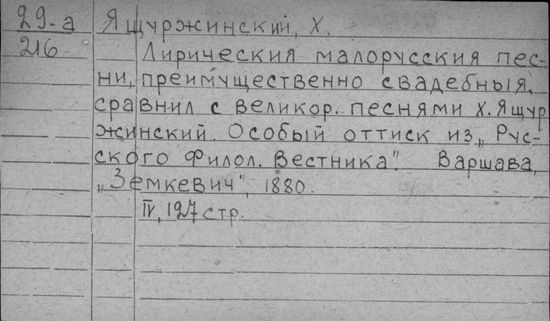 29-а Ящуржинский, Х.
216
Лирическия малорусския пес-
ни, преимущественно свадебныя,
сравнил с великор. песнями Х. Ящур
жинский. Особый оттиск из „Рус-
ского Филол. Вестника". Варшава,
„Земкевич", 1880.
IV, 127 стр.